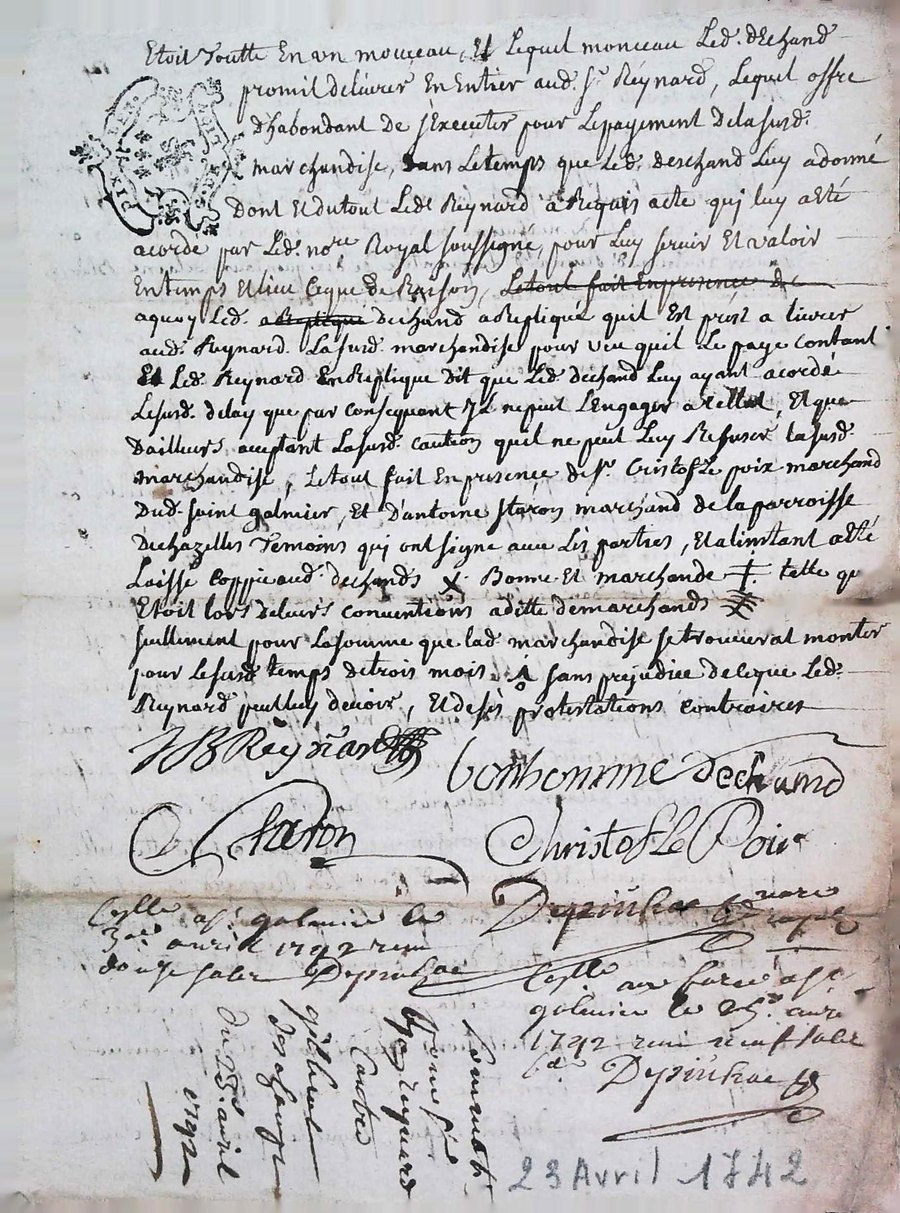 Etoit Toutte En un monceau, Et Lequel monceau Led. dEchand
promit delivrer En Entier aud. Sr. Reynard, Lequel offre
d'habondant de sExecuter pour Lepayement delasusd.
marchandise, dans Letemps que Led. deschand Luy adonné
Dont Et dutout Led. Reynard a Requis acte quj luy aEté
acordé par Led. nore. Royal soussigné, pour Luy servir Et valoir
En temps Et lieu Ceque de Raison, Letout fait En presence de
aquoy Led. a Replique dechand aRepliqué quil Est prest a livrer
aud. Reynard. Lasusd. marchandise pour veu quil Le paye contant
Et Led. Reynard En Replique dit que Led. dechand Luy ayant acordé
Lesusd. delay que par consequant JL nepeut LEngager a, Et que
Dailleurs, aceptant Lasusd. caution quil ne peut Luy Refuser lasusd.
marchandise, Letout fait En presence de Sr. Cristofle poix marchand
Dud. saint galmier, Et D'antoine staron marchand de la parroisse
Dechazelles Temoins qui ont signe avec Les parties, Et alinstant aEté
Laissé coppie aud. dechands x Bonne Et marchande ‡ telle qu
Etoit lors deleurs conventions aditte demarchands
seullement pour Lasomme que lad. marchandise setrouverat monter
pour Lesusd. temps detrois mois. sans prejudice deceque Led.
Reynard peutluy devoir, Et deses protestations contraires
JB Reynard
bonhomme Dechand
Staron
Christofle Poix
nore
royal
galmier le
avril 1742 reçu
douze sols
galmier le 25e. avril
1742 reçu neuf sols
Reynard
Contre
du 23e. avril
1742
23 Avril 1742